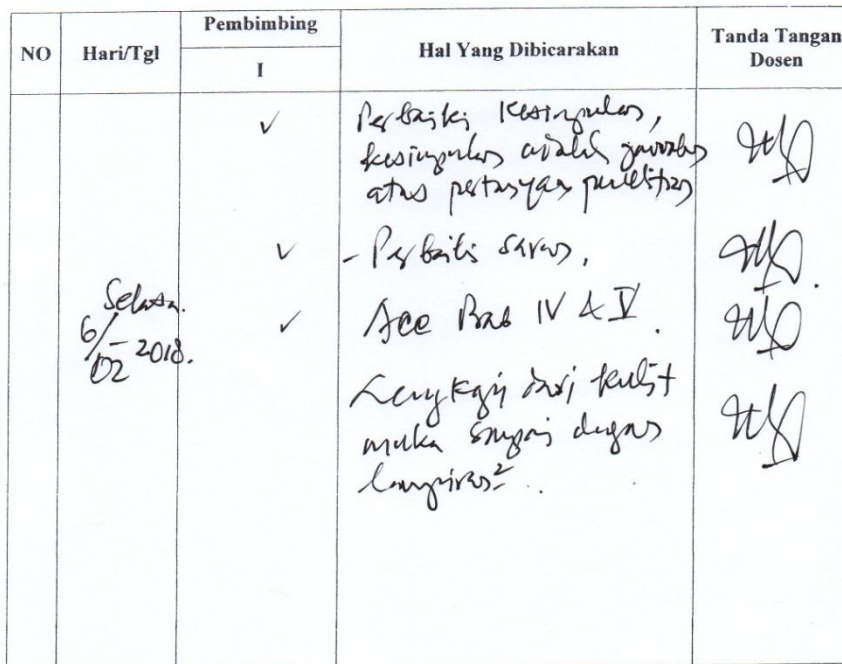 NO Hari/Tgl Pembimbing Hal Yang Dibicarakan Tanda Tangan Dosen
I
✓ Perbaiki Kesimpulan,
kesimpulan adalah jawaban
atas pertanyaan penelitian
✓ - Perbaiki saran.
Selasa. ✓ Acc Bab IV & V.
6/02-2018.
Lengkapi dari kulit
muka sampai dengan
lampiran².